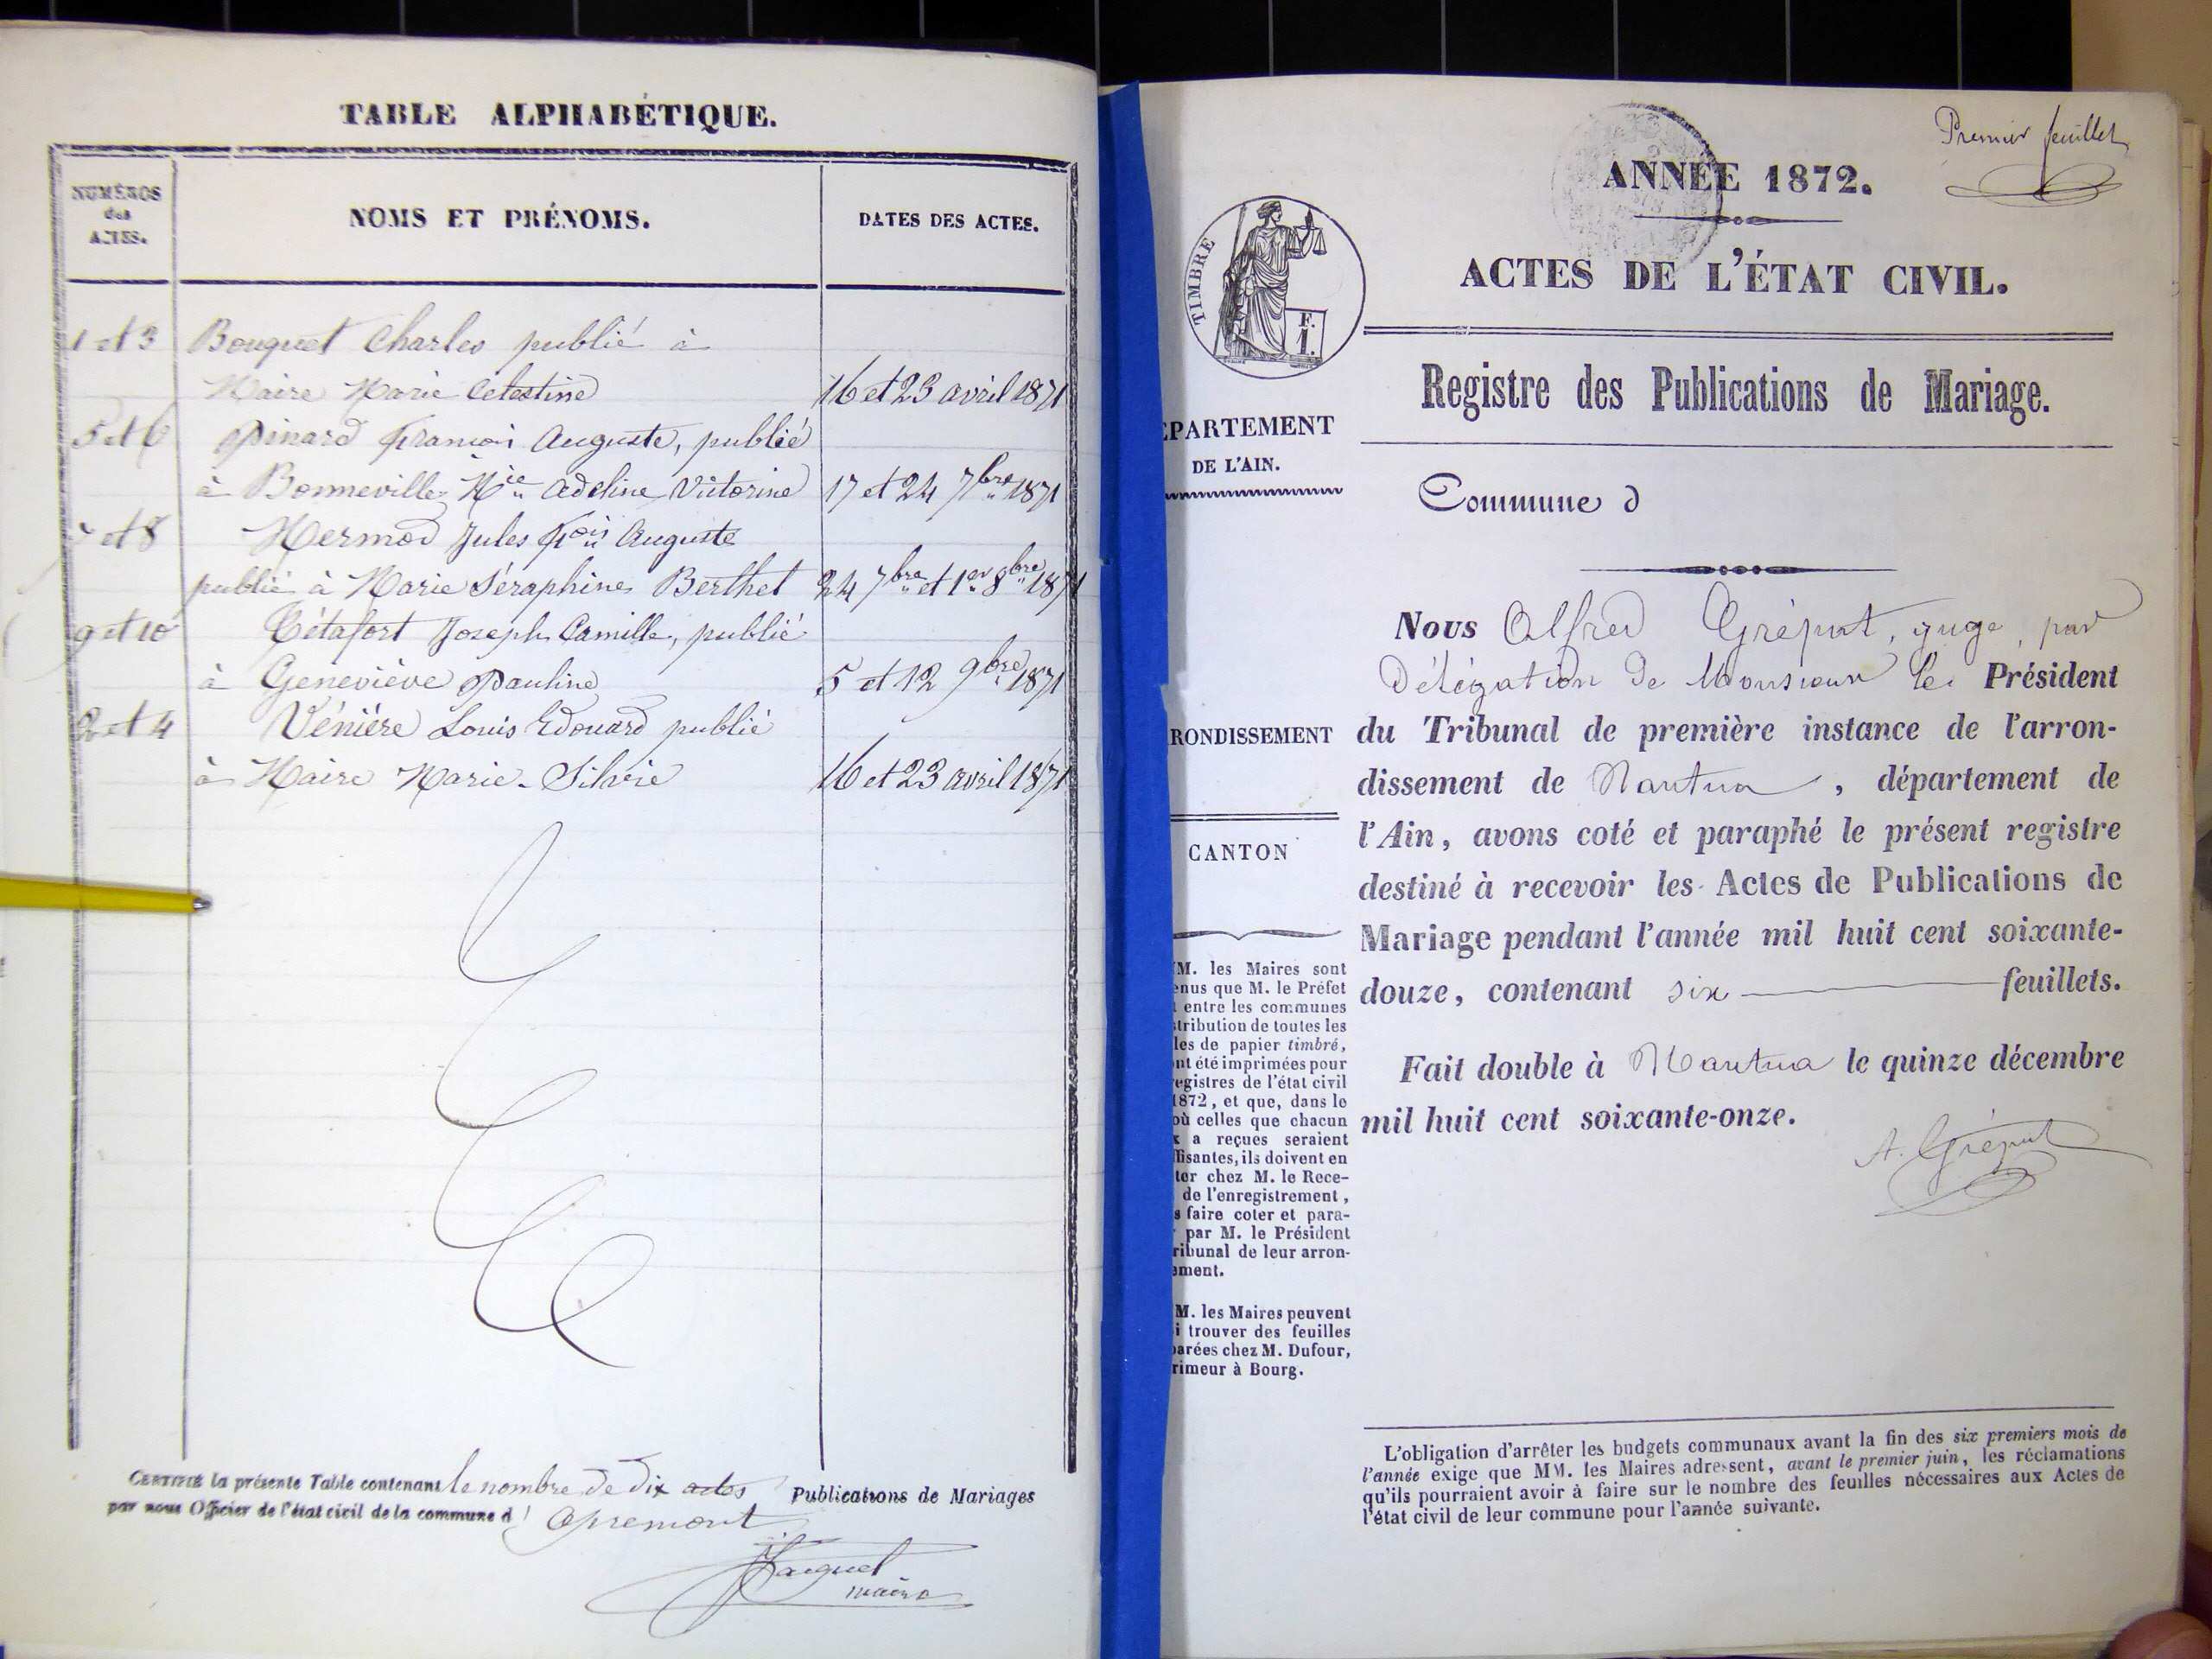 TABLE ALPHABÉTIQUE.
NUMÉROS
des
ACTES.
NOMS ET PRÉNOMS.
DATES DES ACTES.
1 et 3 Bouquet Charles publié à
Maire Marie Celestine 16 et 23 avril 1871
5 et 6 Pinard François Auguste, publié
à Bonneville Mie Adeline Victorine 17 et 24 7bre 1871
et 8 Mermod Jules Fois Auguste
publié à Marie Séraphine Berthet 24 7bre et 1er 8bre 1871
9 et 10 Tétafort Joseph Camille, publié
à Geneviève Pauline 5 et 12 9bre 1871
2 et 4 Vénière Louis Edouard publié
à Maire Marie-Silvie 16 et 23 avril 1871
CERTIFIÉ la présente Table contenant le nombre de dix actes Publications de Mariages
par nous Officier de l'état civil de la commune d'Apremont
maire
Premier feuillet
ANNÉE 1872.
TIMBRE
F.
1.
ACTES DE L'ÉTAT CIVIL.
Registre des Publications de Mariage.
ÉPARTEMENT
DE L'AIN.
Commune d
RONDISSEMENT
CANTON
Nous Alfred Grépat, juge, par
Délégation de Monsieur le Président
du Tribunal de première instance de l'arron-
dissement de Nantua, département de
l'Ain, avons coté et paraphé le présent registre
destiné à recevoir les Actes de Publications de
Mariage pendant l'année mil huit cent soixante-
douze, contenant six feuillets.
Fait double à Nantua le quinze décembre
mil huit cent soixante-onze.
A. Grépat
M. les Maires sont
enus que M. le Préfet
entre les communes
tribution de toutes les
les de papier timbré,
nt été imprimées pour
egistres de l'état civil
1872, et que, dans le
où celles que chacun
x a reçues seraient
ffisantes, ils doivent en
ter chez M. le Rece-
de l'enregistrement,
s faire coter et para-
par M. le Président
ribunal de leur arron-
ement.
M. les Maires peuvent
i trouver des feuilles
parées chez M. Dufour,
rimeur à Bourg.
L'obligation d'arrêter les budgets communaux avant la fin des six premiers mois de
l'année exige que MM. les Maires adressent, avant le premier juin, les réclamations
qu'ils pourraient avoir à faire sur le nombre des feuilles nécessaires aux Actes de
l'état civil de leur commune pour l'année suivante.